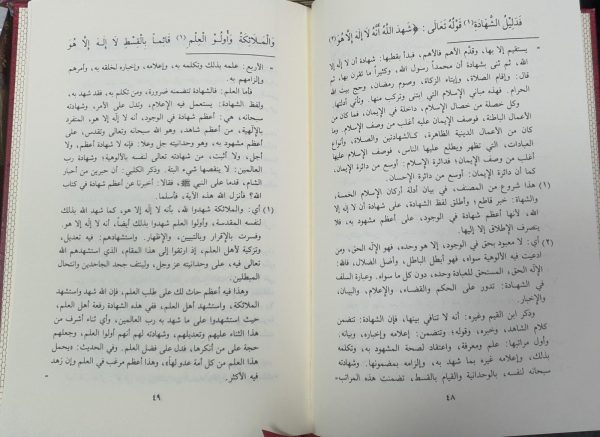 فَدَلِيْلُ الشَّهَادَةِ(١) قَوْلُهُ تَعَالَى: ﴿شَهِدَ اللَّهُ أَنَّهُ لَا إِلَهَ إِلَّا هُوَ(٢)
= يستقيم إلا بها، وقدَّم الأهم فالأهم، فبدأ بقطبها: شهادة أن لا إله إلا
الله، ثم ثنى بشهادة أن محمداً رسول الله، وكثيراً ما تقرن بها، ثم
قال: وإقام الصلاة، وإيتاء الزكاة، وصوم رمضان، وحج بيت الله
الحرام. فهذه مباني الإسلام التي ابتنى وتركب منها. وتأتي أدلتها.
وكل خصلة من خصال الإسلام، داخلة في الإيمان، فما كان من
الأعمال الباطنة، فوصف الإيمان عليه أغلب من وصف الإسلام. وما
كان من الأعمال الدينية الظاهرة، كالشهادتين والصلاة، وأنواع
العبادات، التي تظهر ويطلع عليها الناس، فوصف الإسلام عليها
أغلب من وصف الإيمان؛ فدائرة الإسلام: أوسع من دائرة الإيمان،
كما أن دائرة الإيمان: أوسع من دائرة الإحسان.
(١) هذا شروع من المصنف، في بيان أدلة أركان الإسلام الخمسة،
والشهادة: خبر قاطع؛ وأطلق لفظ الشهادة، على شهادة أن لا إله إلا
الله، لأنها أعظم شهادة في الوجود، على أعظم مشهود به، فلا
ينصرف الإطلاق إلا إليها.
(٢) أي: لا معبود بحق في الوجود، إلا هو وحده، فهو الإله الحق، ومن
ادعيت فيه الألوهية سواه، فهو أبطل الباطل، وأضل الضلال، فالله:
الإله الحق، المستحق للعبادة وحده، دون كل ما سواه. وعبارة السلف
في الشهادة: تدور على الحكم والقضاء، والإعلام، والبيان،
والإخبار.
وذكر ابن القيم وغيره: أنه لا تنافي بينها، فإن الشهادة: تتضمن
كلام الشاهد، وخبره، وقوله؛ وتتضمن: إعلامه وإخباره، وبيانه.
وأول مراتبها: علم ومعرفة، واعتقاد لصحة المشهود به، وتكلمه
بذلك، وإعلامه غيره بما شهد به، وإلزامه بمضمونها. وشهادته
سبحانه لنفسه، بالوحدانية والقيام بالقسط، تضمنت هذه المراتب=
٤٨
وَالْمَلَائِكَةُ وَأُولُو الْعِلْمِ(١) قَائِماً بِالْقِسْطِ لَا إِلَهَ إِلَّا هُوَ
= الأربع: علمه بذلك وتكلمه به، وإعلامه، وإخباره لخلقه به، وأمرهم
وإلزامهم به.
فأما العلم: فالشهادة تتضمنه ضرورة، ومن تكلم به، فقد شهد به،
ولفظ الشهادة: يستعمل فيه الإعلام، وتدل على الأمر، وشهادته
سبحانه، هي: أعظم شهادة في الوجود، أنه لا إله إلا هو، المتفرد
بالإلهية، من أعظم شاهد، وهو الله سبحانه وتعالى وتقدس، على
أعظم مشهود به، وهو وحدانيته جل وعلا؛ فإنه لا شهادة أعظم، ولا
أجل، ولا أثبت، من شهادته تعالى لنفسه بالألوهية؛ وشهادة رب
العالمين: لا ينقصها شيء البتة. وذكر الكلبي: أن حبرين من أحبار
الشام، قدما على النبي ﷺ، فقالا: أخبرنا عن أعظم شهادة في كتاب
الله؟ فأنزل الله هذه الآية، فأسلما.
(١) أي: والملائكة شهدوا لله، بأنه لا إله إلا هو، كما شهد الله بذلك
لنفسه المقدسة، وأولوا العلم شهدوا بذلك أيضاً، أنه لا إله إلا هو.
وفسرت بالإقرار وبالتبيين، والإظهار. واستشهادهم: فيه تعديل،
وتزكية لأهل العلم، إذ ارتقوا إلى هذا المقام، الذي استشهدهم الله
تعالى فيه، على وحدانيته عز وجل، وليتنف جحد الجاحدين وانتحال
المبطلين.
وهذا فيه أعظم حاث لك على طلب العلم، فإن الله شهد واستشهد
الملائكة، واستشهد أهل العلم، ففي هذه الشهادة رفعة أهل العلم،
حيث استشهدوا على ما شهد به رب العالمين، وأي ثناء أشرف من
هذا الثناء عليهم وتعديلهم، وشهادته لهم أنهم أولوا العلم، وجعلهم
حجة على من أنكرها، فدل على فضل العلم. وفي الحديث: «يحمل
هذا العلم من كل أمة عدولها»، وهذا أعظم مرغب في العلم وإن زهد
فيه الأكثر. =
٤٩